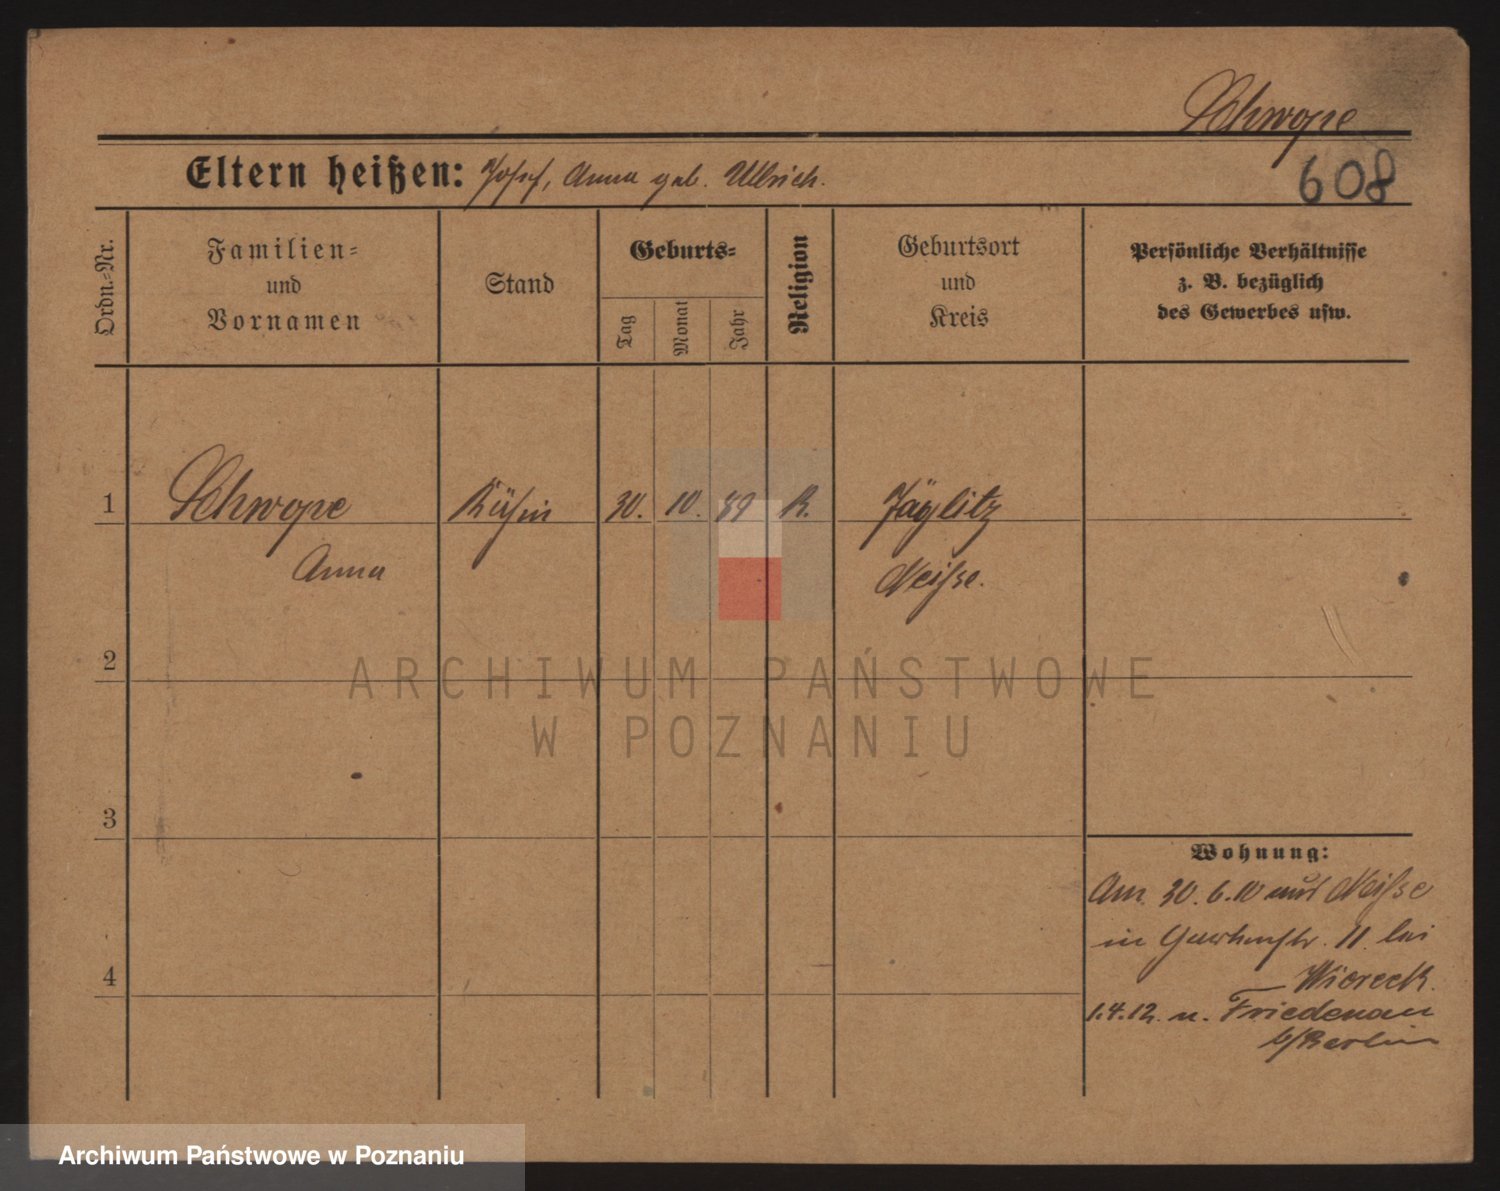 Schwope
Eltern heißen: Josef, Anna geb. Ullrich.
608
Ordn.-Nr.
Familien-
und
Vornamen
Stand
Geburts-
Tag
Monat
Jahr
Religion
Geburtsort
und
Kreis
Persönliche Verhältnisse
z. B. bezüglich
des Gewerbes usw.
1
Schwope
Anna
30. 10. 89
K.
Jäglitz
Neisse.
2
3
4
Wohnung:
Am 30.6.10 aus Neisse
in 11 bei
Wiereck.
1.4.12. n. Friedenau
b/Berlin
ARCHIWUM PAŃSTWOWE
W POZNANIU
Archiwum Państwowe w Poznaniu